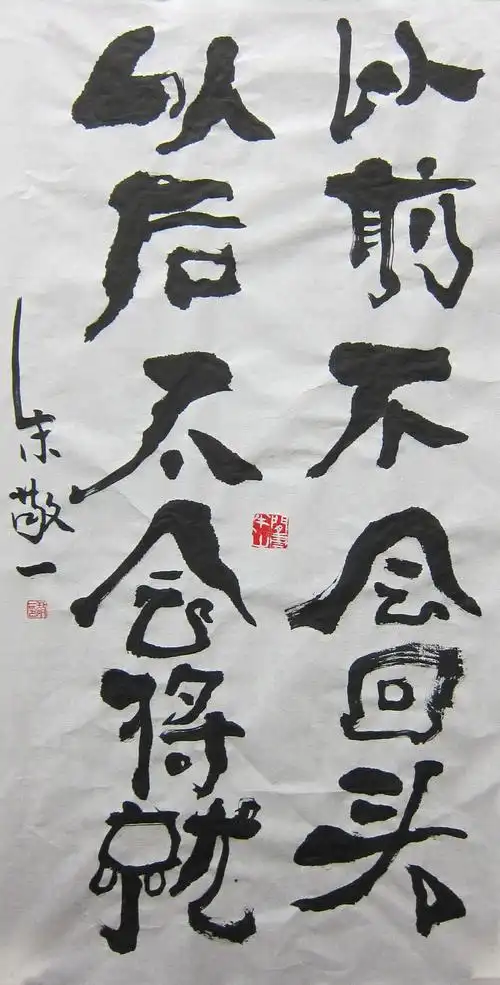 以前不会回头
以后不会将就
朱敬一